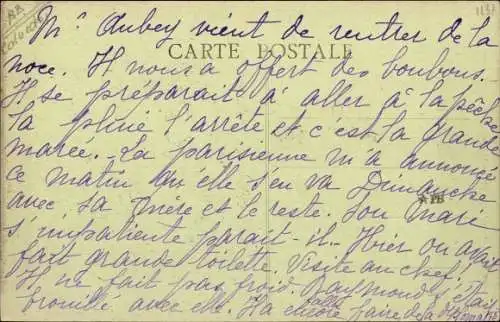 Mr Aubey vient de rentrer de la
CARTE POSTALE
noce. Il nous a offert des bonbons.
Il se préparait à aller à la pêche
la pluie l'arrête et c'est la grande
marée. La parisienne m'a annoncé
ce matin qu'elle s'en va Dimanche
avec sa mère et le reste. Son mari
s'impatiente parait-il. Hier on avait
fait grande toilette. Visite au chef!
Il ne fait pas froid. Raymond s'était
brouillé avec elle. Il a fallu faire de la